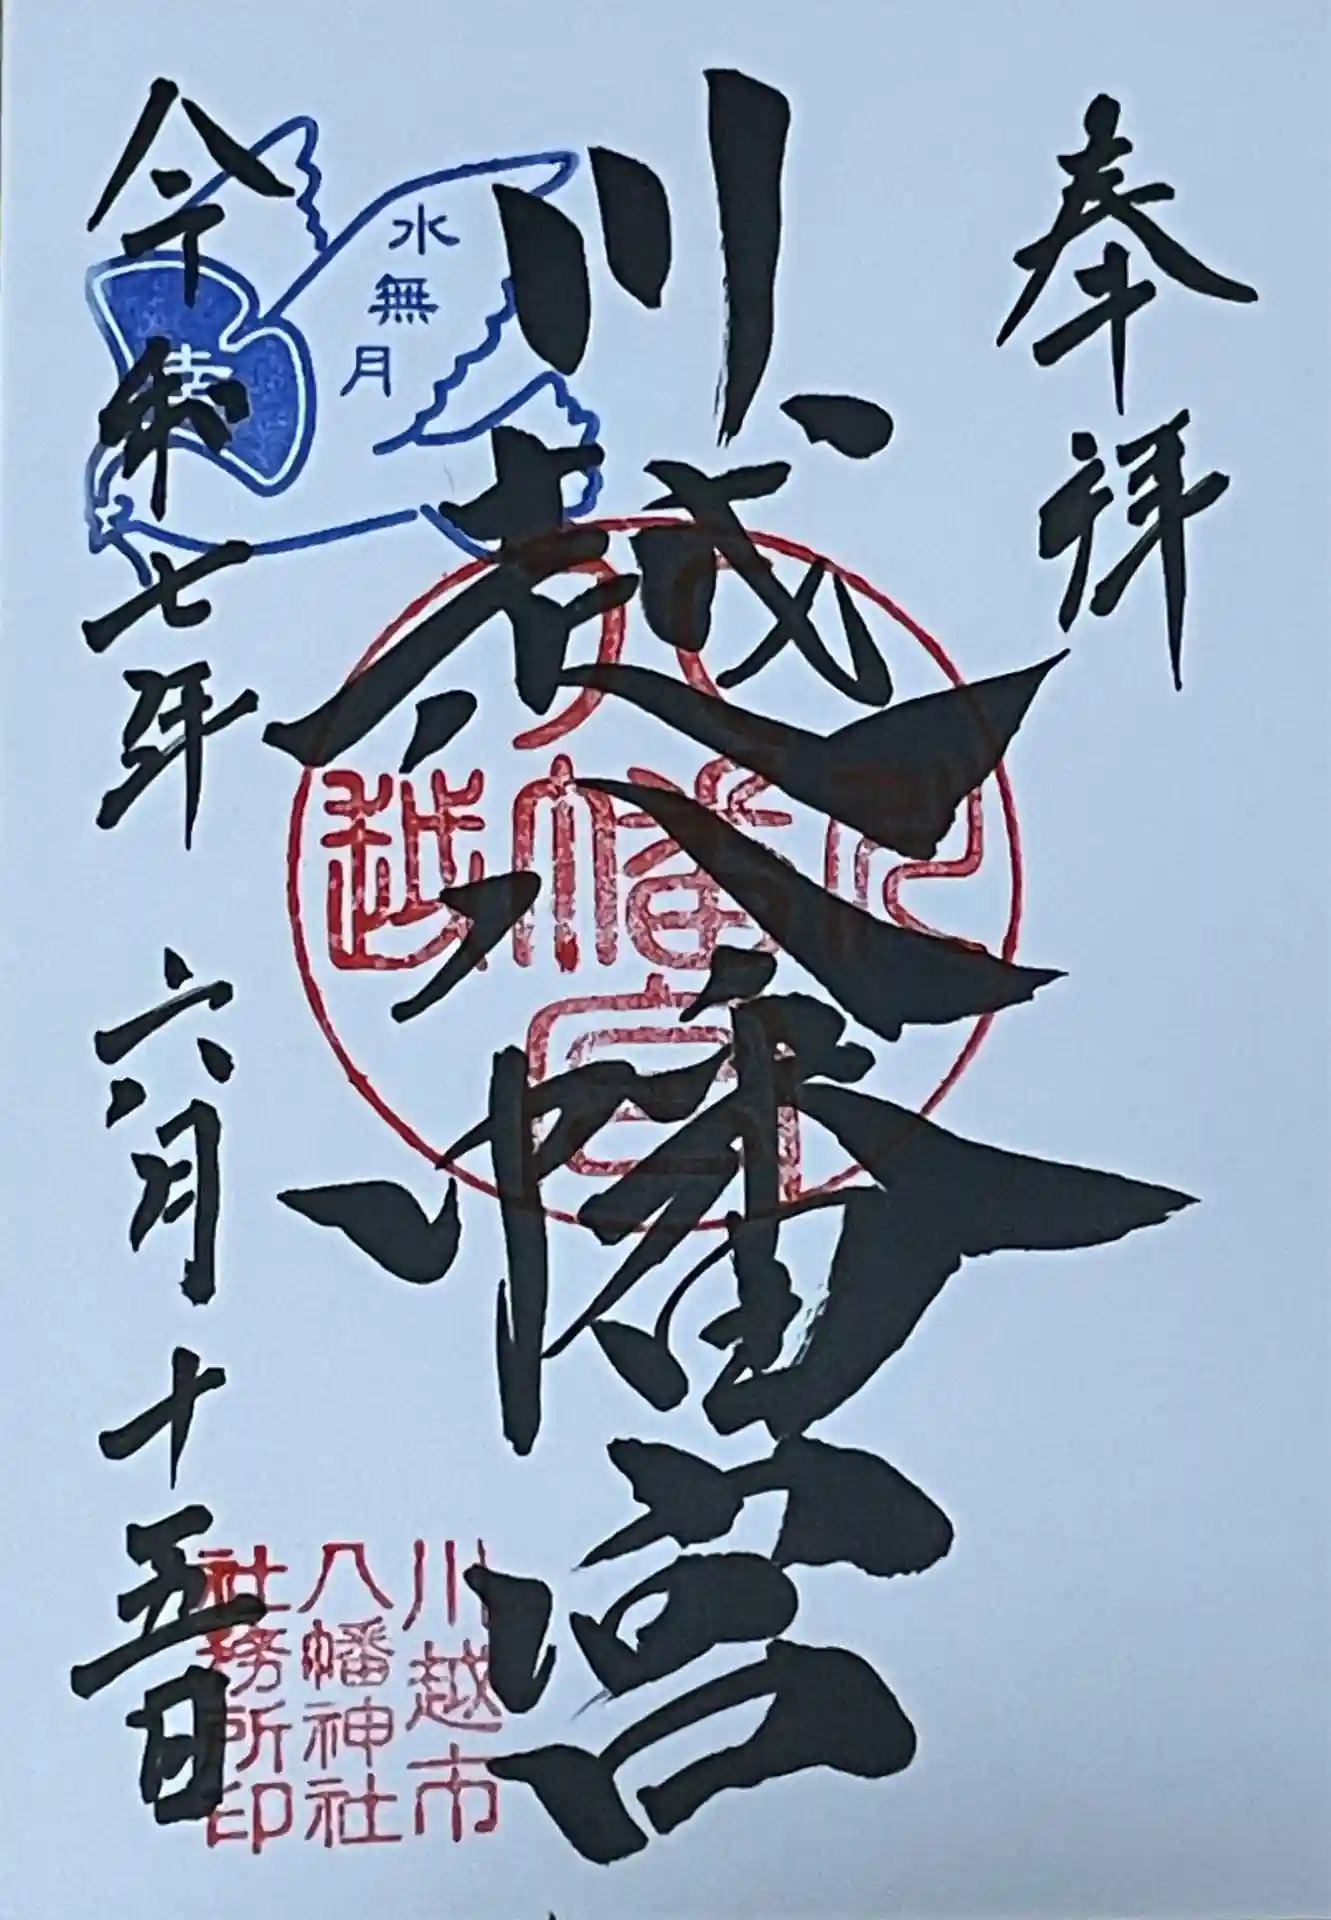 奉拝
川越八幡宮
水無月
幸
川越
八幡宮
令和七年 六月十五日
川越市
八幡神社
社務所印